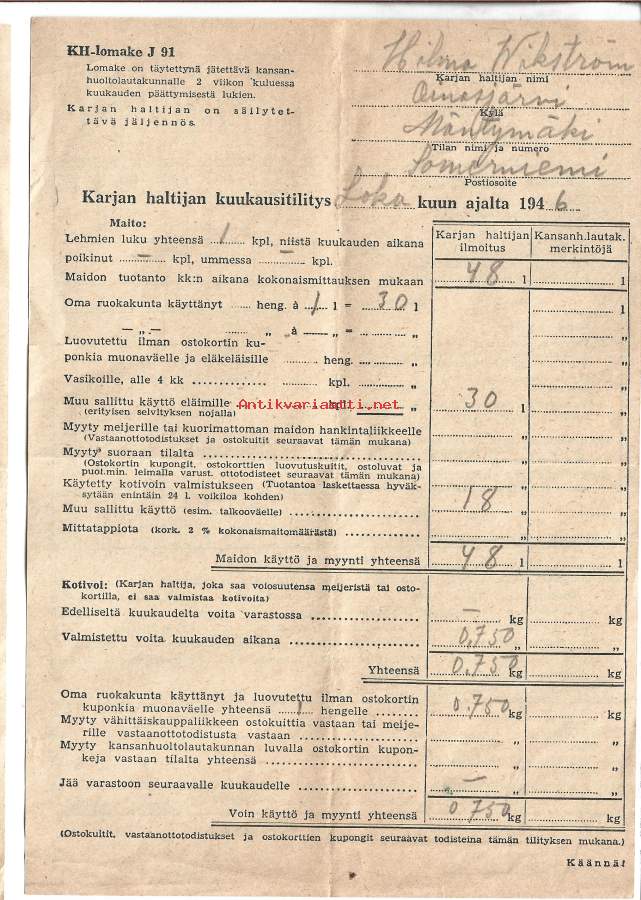 KH-lomake J 91
Lomake on täytettynä jätettävä kansan-
huoltolautakunnalle 2 viikon kuluessa
kuukauden päättymisestä lukien.
Karjan haltijan on säilytet-
tävä jäljennös.
Hilma Wikström
Karjan haltijan nimi
Oinasjärvi
Kylä
Mäntymäki
Tilan nimi ja numero
Somerniemi
Postiosoite
Karjan haltijan kuukausitilitys Loka kuun ajalta 1946
Maito:
Karjan haltijan ilmoitus
Kansanh.lautak. merkintöjä
Lehmien luku yhteensä 1 kpl, niistä kuukauden aikana
poikinut — kpl, ummessa — kpl.
Maidon tuotanto kk:n aikana kokonaismittauksen mukaan 48 l l
Oma ruokakunta käyttänyt heng. à 1 l = 30 l l
— „ — „ à „ = „ „
Luovutettu ilman ostokortin ku-
ponkia muonaväelle ja eläkeläisille heng. „ „
Vasikoille, alle 4 kk kpl. „ „
Muu sallittu käyttö eläimille kpl. „ 30 l „
(erityisen selvityksen nojalla)
Antikvariaatti.net
Myyty meijerille tai kuorimattoman maidon hankintaliikkeelle
(Vastaanottotodistukset ja ostokuitit seuraavat tämän mukana) „ „
Myyty suoraan tilalta „ „
(Ostokortin kupongit, ostokorttien luovutuskuitit, ostoluvat ja
puot.min. leimalla varust. ottotodisteet seuraavat tämän mukana)
Käytetty kotivoin valmistukseen (Tuotantoa laskettaessa hyväk-
sytään enintäin 24 l. voikiloa kohden) 18 „ „
Muu sallittu käyttö (esim. talkooväelle) „ „
Mittatappiota (kork. 2 % kokonaismaitomäärästä) „ „
Maidon käyttö ja myynti yhteensä 48 l l
Kotivoi: (Karjan haltija, joka saa voiosuutensa meijeristä tai osto-
kortilla, ei saa valmistaa kotivoita)
Edelliseltä kuukaudelta voita varastossa — kg kg
Valmistettu voita kuukauden aikana 0,750 „ „
Yhteensä 0,750 kg kg
Oma ruokakunta käyttänyt ja luovutettu ilman ostokortin
kuponkia muonaväelle yhteensä 1 hengelle 0,750 kg kg
Myyty vähittäiskauppaliikkeen ostokuittia vastaan tai meije-
rille vastaanottotodistusta vastaan „ „
Myyty kansanhuoltolautakunnan luvalla ostokortin kupon-
keja vastaan tilalta yhteensä „ „
Jää varastoon seuraavalle kuukaudelle — „ „
Voin käyttö ja myynti yhteensä 0 750 kg kg
(Ostokuitit, vastaanottotodistukset ja ostokorttien kupongit seuraavat todisteina tämän tilityksen mukana.)
Käännä!